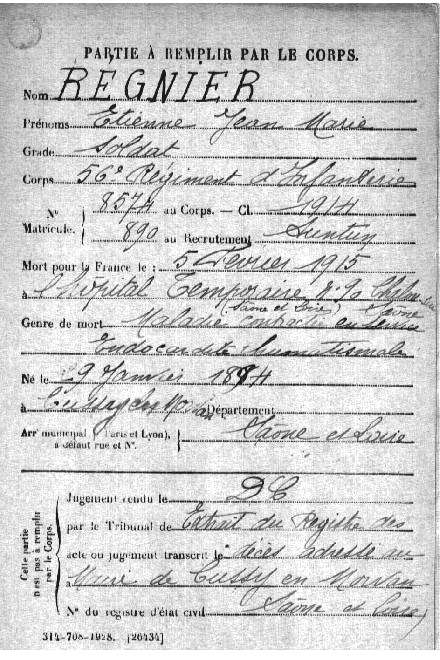 PARTIE À REMPLIR PAR LE CORPS.
Nom REGNIER
Prénoms Etienne Jean Marie
Grade Soldat
Corps 56e Régiment d'Infanterie
N° 8574 au Corps. — Cl. 1914
Matricule. 890 au Recrutement Autun
Mort pour la France le : 5 Février 1915
à l'hôpital Temporaire
(Saône et Loire)
Genre de mort Maladie contractée en service
Endocardite rhumatismale
Né le 29 Janvier 1894
à Cussy en Morvan Département
Arrt municipal (Paris et Lyon), à défaut rue et N°. Saône et Loire
Cette partie n'est pas à remplir par le Corps.
Jugement rendu le DC
par le Tribunal de Extrait du Registre des
acte ou jugement transcrit le décès adressé au
à Maire de Cussy en Morvan
N° du registre d'état civil Saône et Loire)
314-708-1928. [26434]